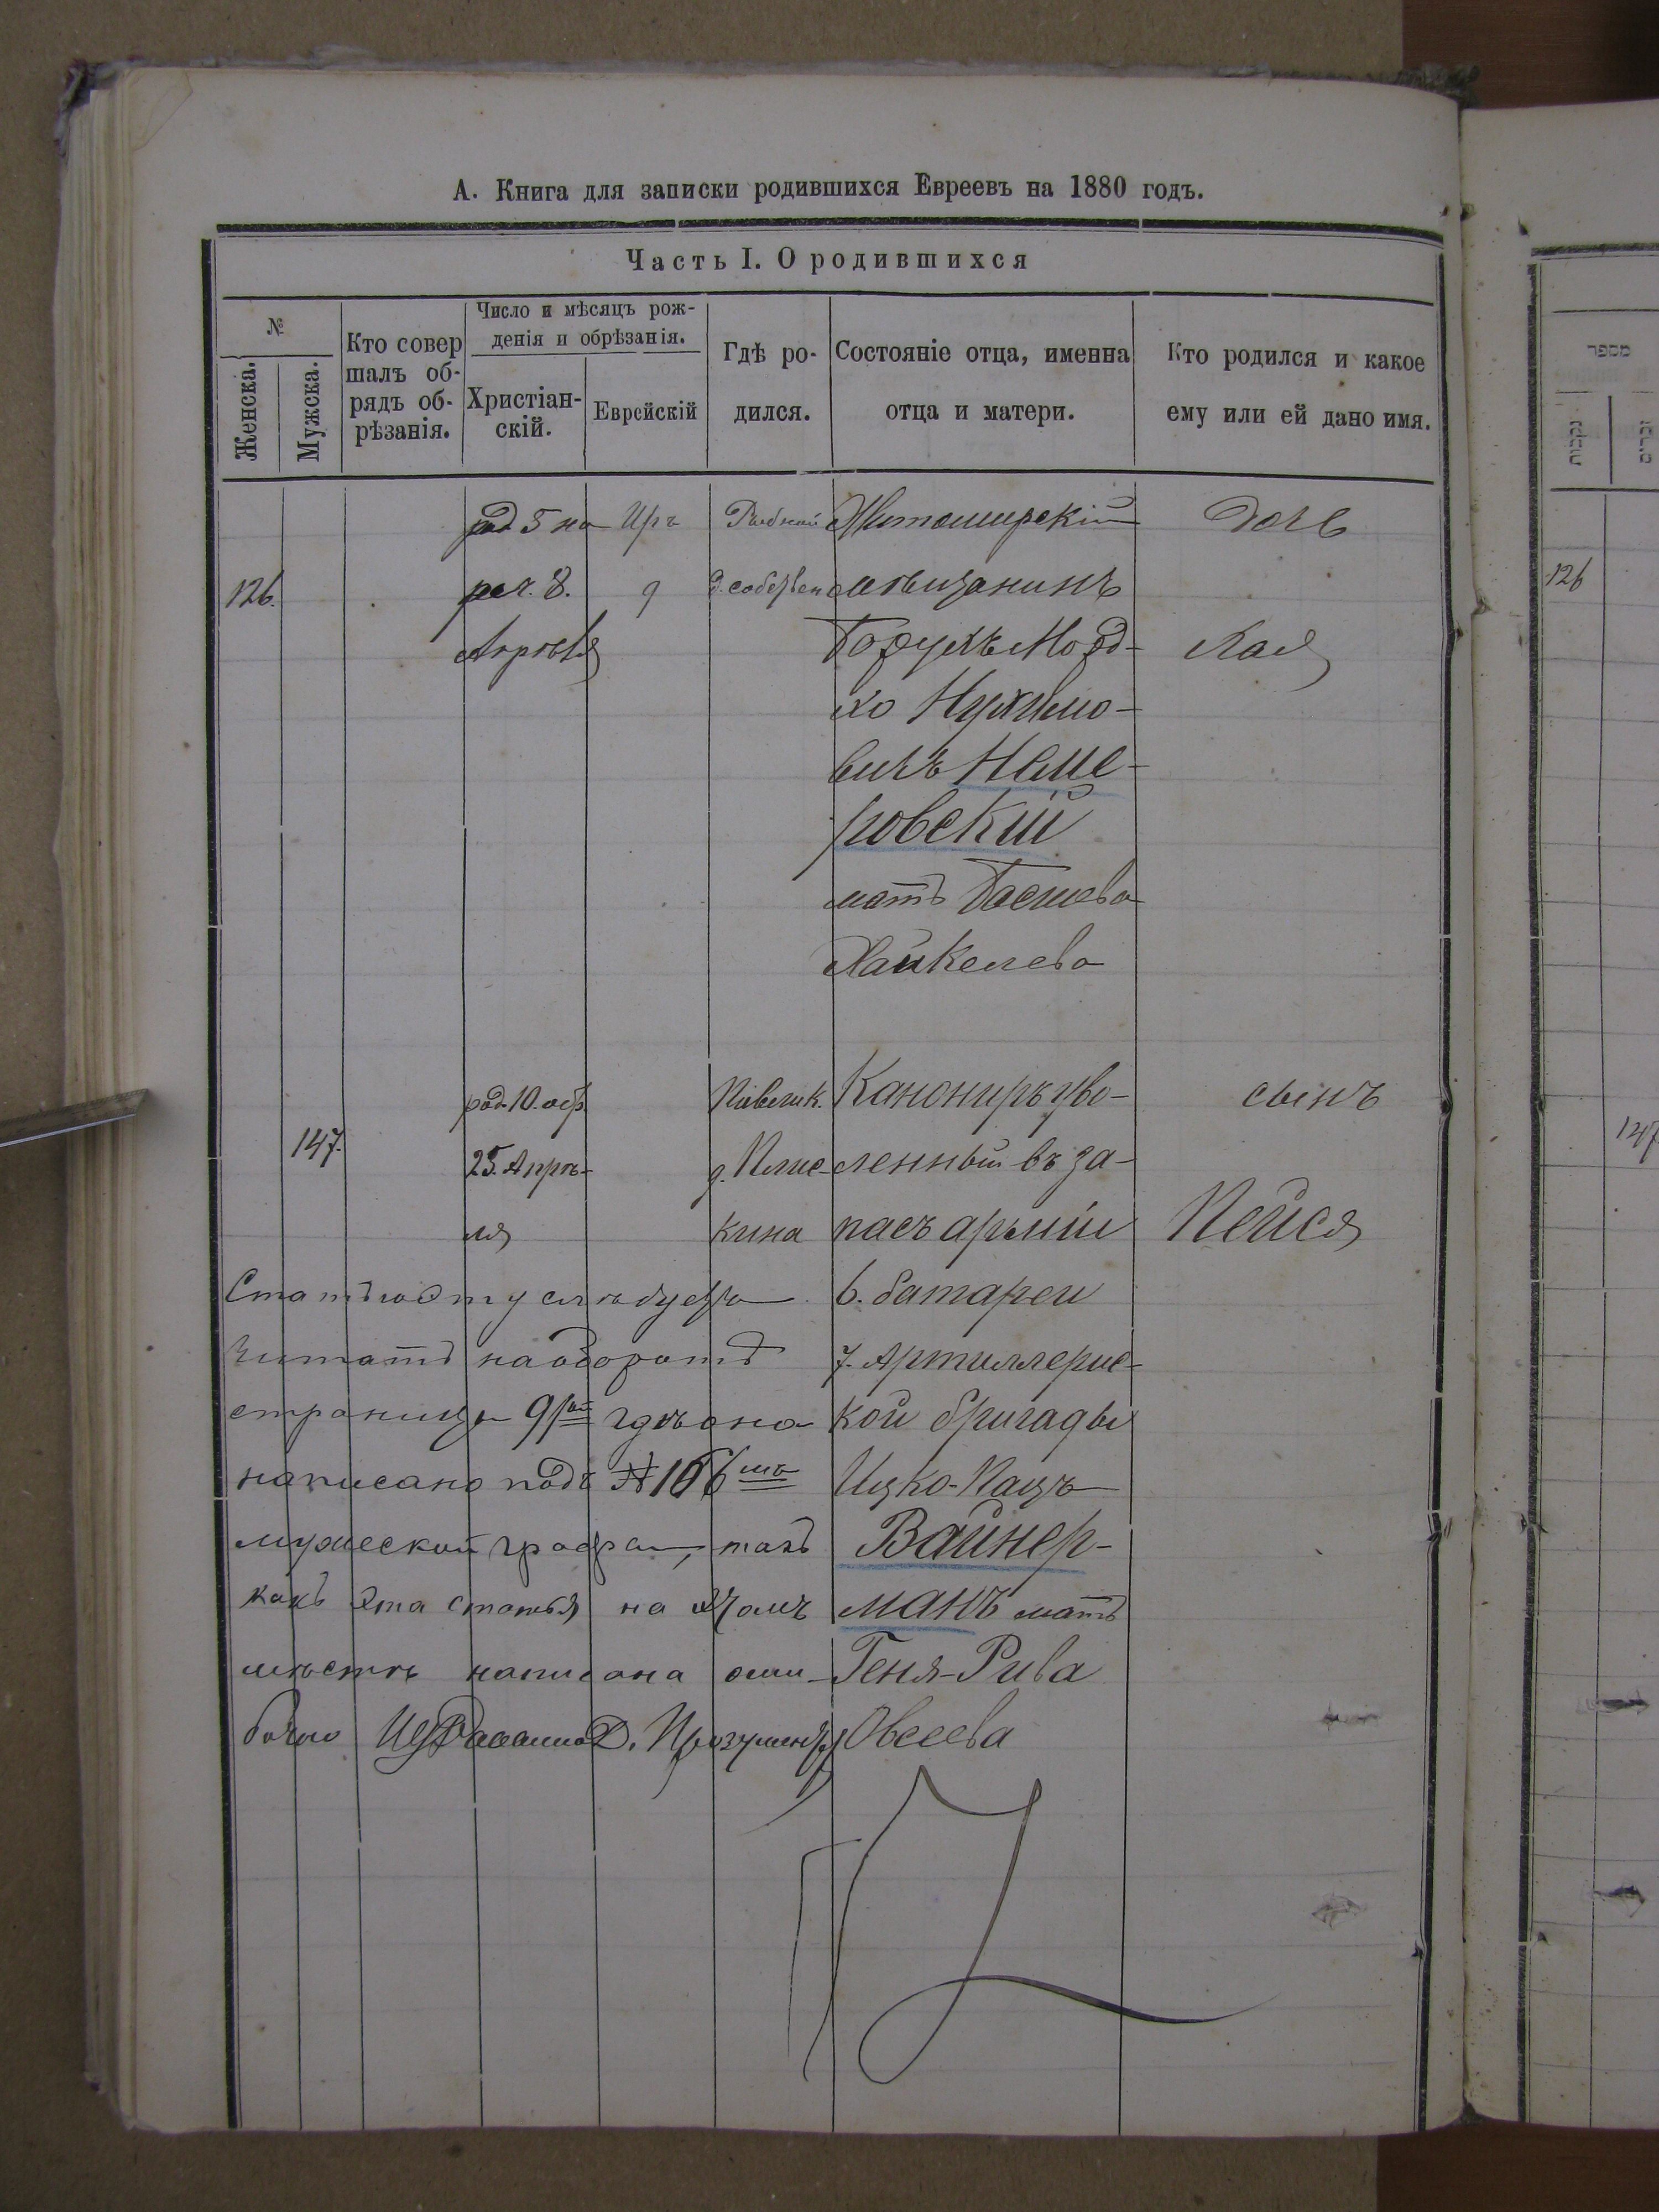 А. Книга для записки родившихся Евреевъ на 1880 годъ.
Часть I. О родившихся
№
Женска.
Мужска.
Кто совер
шалъ об-
рядъ об-
рѣзанія.
Число и мѣсяцъ рож-
денія и обрѣзанія.
Христіан-
скій.
Еврейскій
Гдѣ ро-
дился.
Состояніе отца, именна
отца и матери.
Кто родился и какое
ему или ей дано имя.
126.
род 5 на
реч. 8.
Апрѣля
Иръ
9
Рыбной
д. собствен
Житомирскій
мѣщанинъ
Борухъ Морд-
ко Нухимо-
вичъ Неме-
ровскій
мать Басшева
Хайкелева
дочь
Хая
147.
род. 10. обр.
25. Апрѣ-
ля
д. Плис-
кина
Канониръ уво-
ленный въ за-
пасъ арміи
6. батареи
7. Артиллерис-
кой бригады
Ицко-Кацъ
Вайнер-
манъ мать
Геня-Рива
Овсеева
сынъ
Пейся
Статью эту слѣдуетъ
читать на оборотѣ
страницы 91ой гдѣ она
написано подъ № 166мъ
мужеской графы, такъ
какъ эта статья на этомъ
мѣстѣ написана оши-
бочно
מספר
נקבות
זכרים
126
147